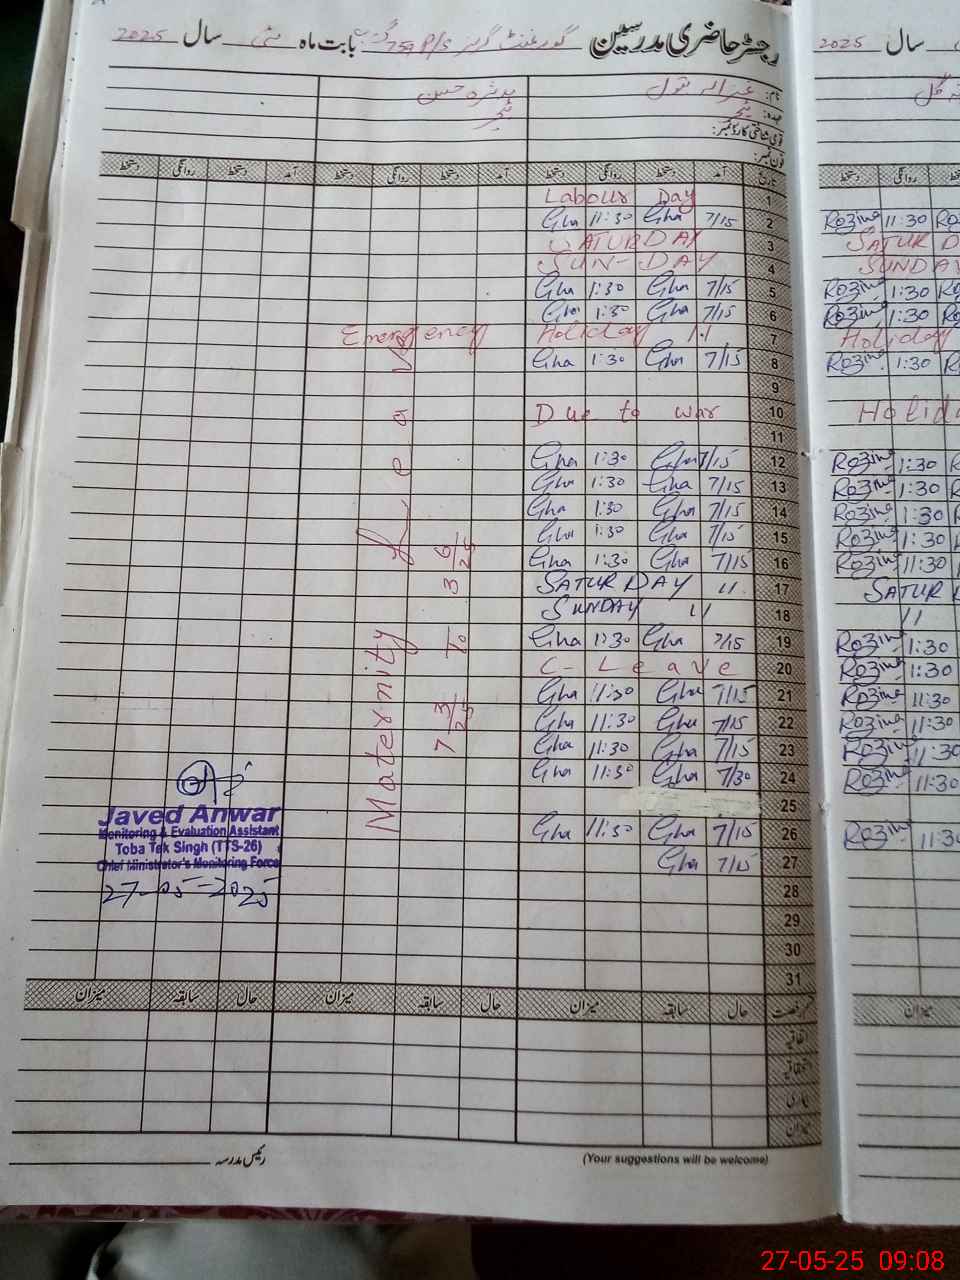 رجسٹر حاضری مدرسین گورنمنٹ گرلز P/S 759 گ ب بابت ماہ مئی سال 2025
سال 2025
نام:
عہدہ: ٹیچر ٹیچر
قومی شناختی کارڈ نمبر:
فون نمبر:
تاریخ آمد دستخط روانگی دستخط آمد دستخط روانگی دستخط آمد دستخط روانگی دستخط
1 Labour Day
2 7/15 Gha 11:30 Gha Rozina 11:30
3 SATURDAY SATUR
4 SUN-DAY SUNDAY
5 7/15 Gha 1:30 Gha Rozina 1:30
6 7/15 Gha 1:30 Gha Rozina 1:30
7 Emergency Holiday Holiday
8 7/15 Gha 1:30 Gha Rozina 1:30
9
10 Due to war
11
12 7/15 Gha 1:30 Gha Rozina 1:30
13 7/15 Gha 1:30 Gha Rozina 1:30
14 7/15 Gha 1:30 Gha Rozina 1:30
15 7/15 Gha 1:30 Gha Rozina 1:30
16 7/15 Gha 11:30 Gha Rozina 11:30
17 SATURDAY 11 SATUR
18 SUNDAY 11 11
19 7/15 Gha 1:30 Gha Rozina 1:30
20 C-Leave Rozina 1:30
21 7/15 Gha 11:30 Gha Rozina 11:30
22 7/15 Gha 11:30 Gha Rozina 11:30
23 7/15 Gha 11:30 Gha Rozina 11:30
24 7/30 Gha 11:30 Gha Rozina 11:30
25
26 7/15 Gha 11:30 Gha Rozina 11:30
27 7/15 Gha
28
29
30
31
Maternity Leave
7 3/25 To 3 6/25
Javed Anwar
Monitoring & Evaluation Assistant
Toba Tek Singh (TTS-26)
Chief Minister's Monitoring Force
27-05-2025
قسم رخصت حال سابقہ میزان حال سابقہ میزان حال سابقہ میزان
میزان
اتفاقیہ
استحقاقیہ
بیماری
میزان
رئیس مدرسہ
(Your suggestions will be welcome)
27-05-25 09:08